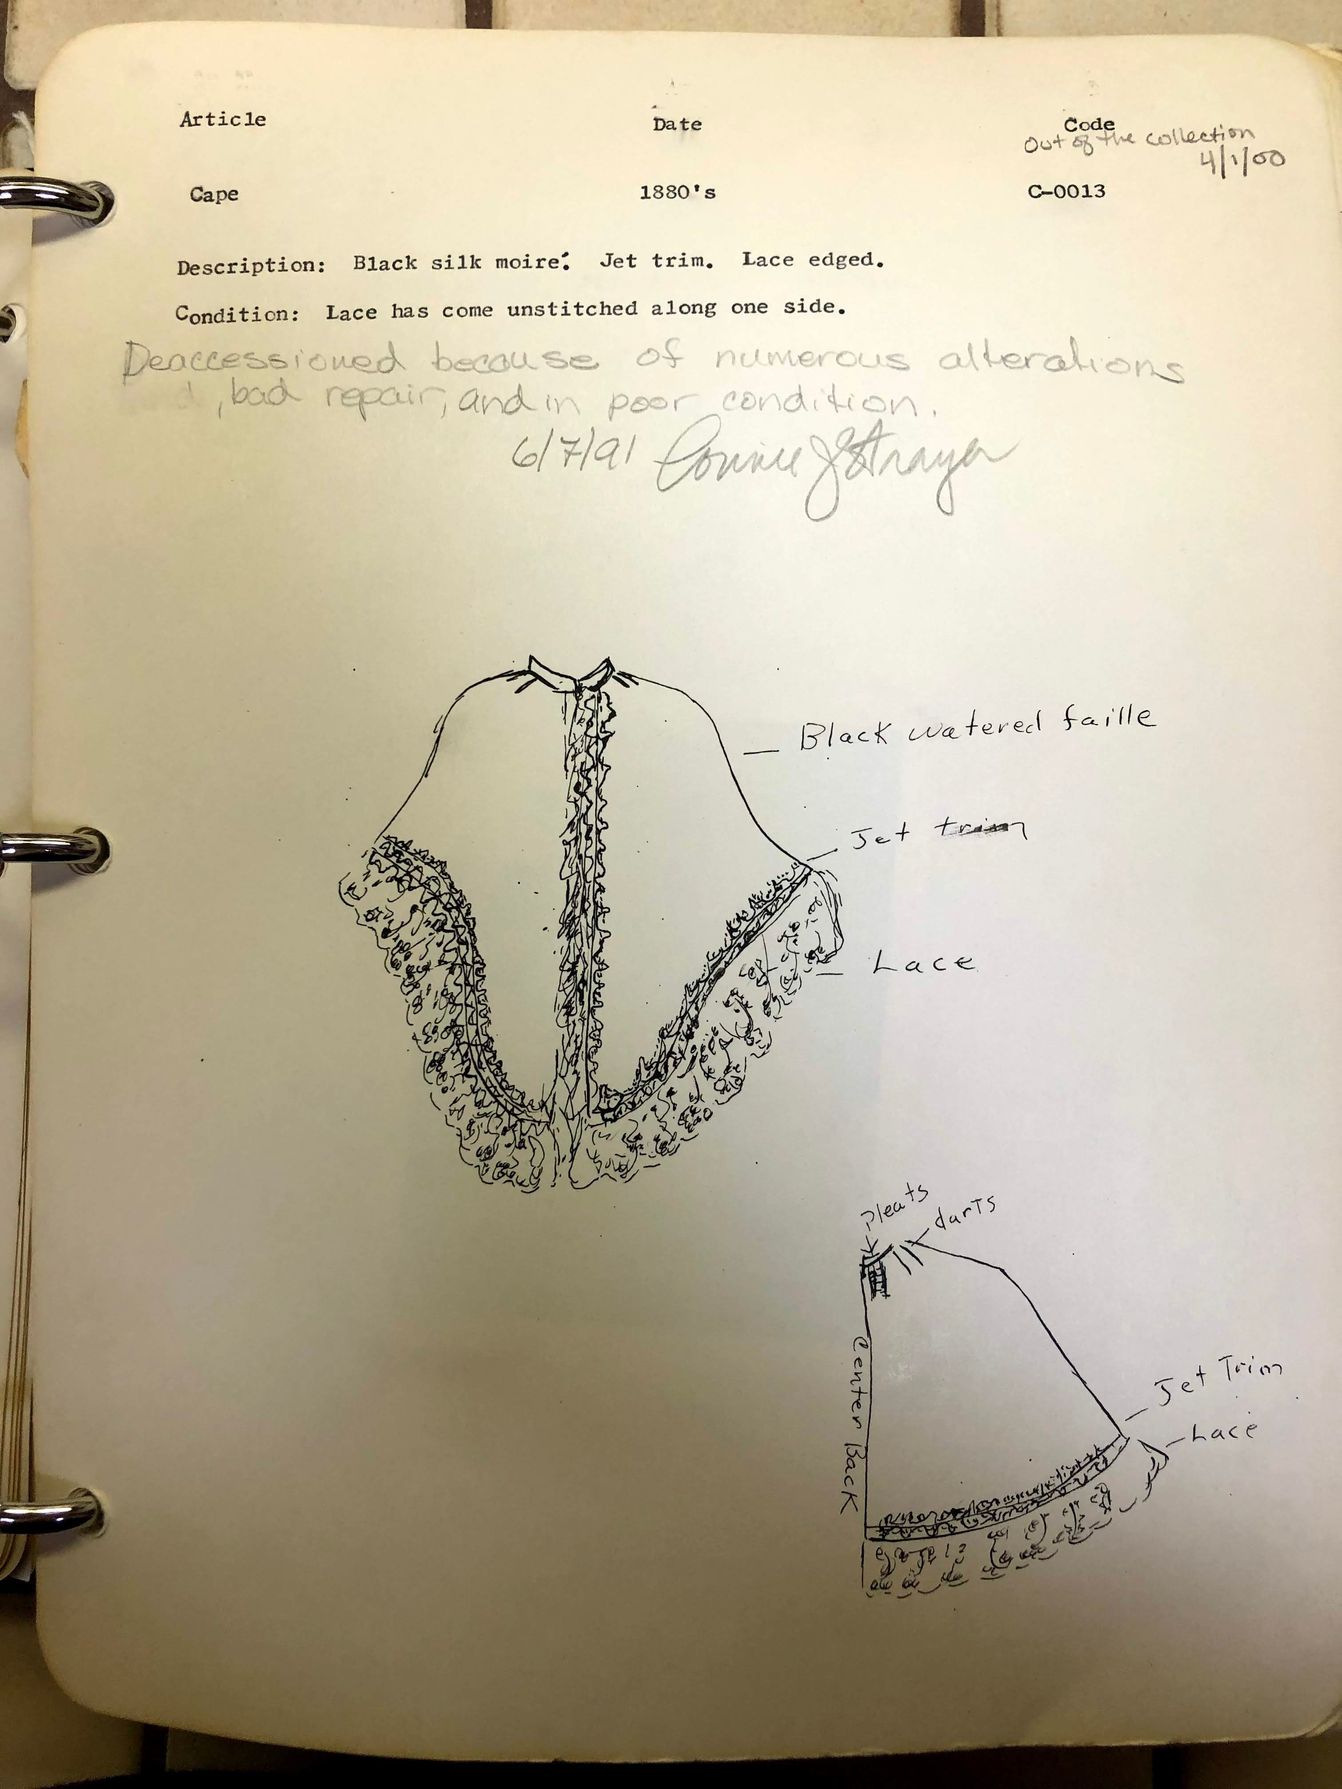 Article Date Code
Out of the collection
4/1/00
Cape 1880's C-0013
Description: Black silk moire. Jet trim. Lace edged.
Condition: Lace has come unstitched along one side.
Deaccessioned because of numerous alterations
, bad repair, and in poor condition.
6/7/91 Connie J Strayer
Black watered faille
Jet trim
Lace
Pleats
darts
Center Back
Jet Trim
Lace